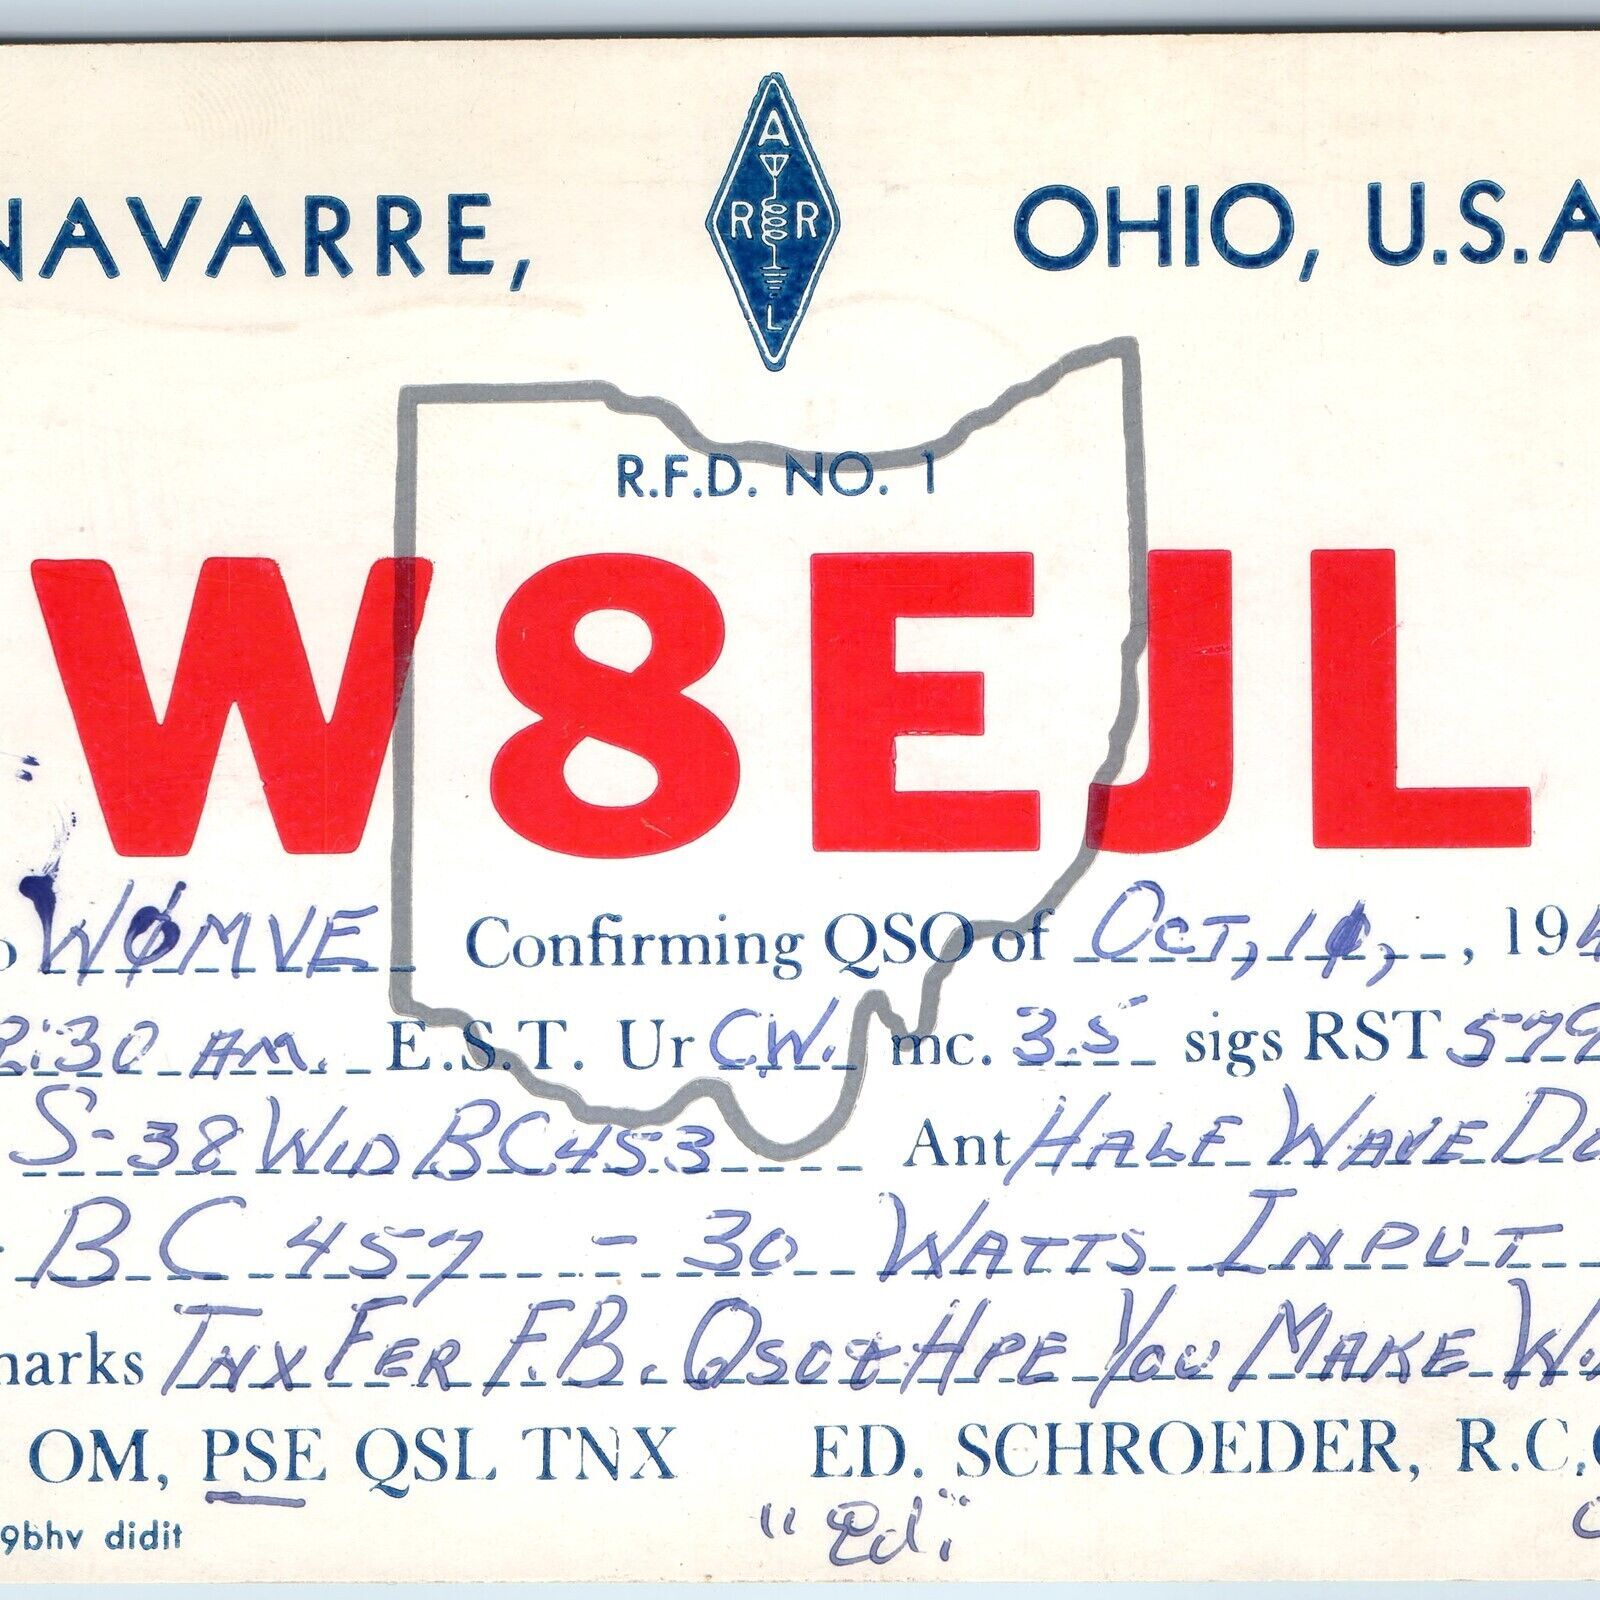 NAVARRE, OHIO, U.S.A
A
R R
L
R.F.D. NO. 1
W8EJL
WØMVE Confirming QSO of Oct, 10, , 194
2:30 AM. E.S.T. Ur CW. mc. 3.5 sigs RST 579
S-38 WID BC453 Ant HALF WAVE
BC 457 - 30 WATTS INPUT
marks TNX FER F.B. QSO & HPE YOU MAKE W.
OM, PSE QSL TNX ED. SCHROEDER, R.C.C
"Ed."
9bhv didit